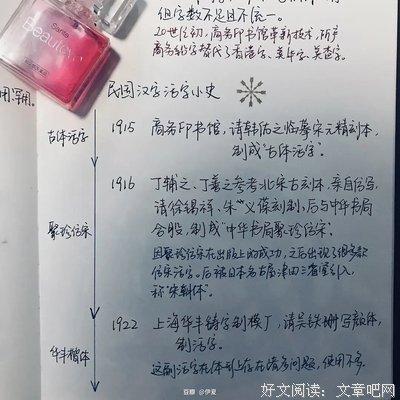 组字数不足且不统一。
20世纪初,商务印书馆革新技术,所产
商务铅字替代了香港字、美华字、美查字。
Santo
Beauté
用罕用。
民国汉字活字小史
古体活字
1915 商务印书馆,请韩佑之临摹宋元精刻本,
制成"古体活字"。
1916 丁辅之、丁善之参考北宋古刻本,亲自仿写,
请徐锡祥、朱义葆刻制,后与中华书局
合股,制成"中华书局聚珍仿宋"。
聚珍仿宋
因聚珍仿宋在出版上的成功,之后出现了很多款
仿宋活字。后被日本名古屋津田三省堂引入,
称"宋朝体"。
1922 上海华丰铸字制模厂,请吴铁珊写颜体,
制活字。
华丰楷体
这副活字在体制上存在诸多问题,使用不多。
豆瓣 @伊夏
好文阅读:文章吧网